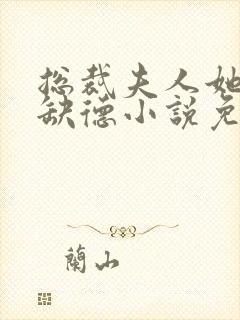 总裁夫人她
缺德小說免
蘭山